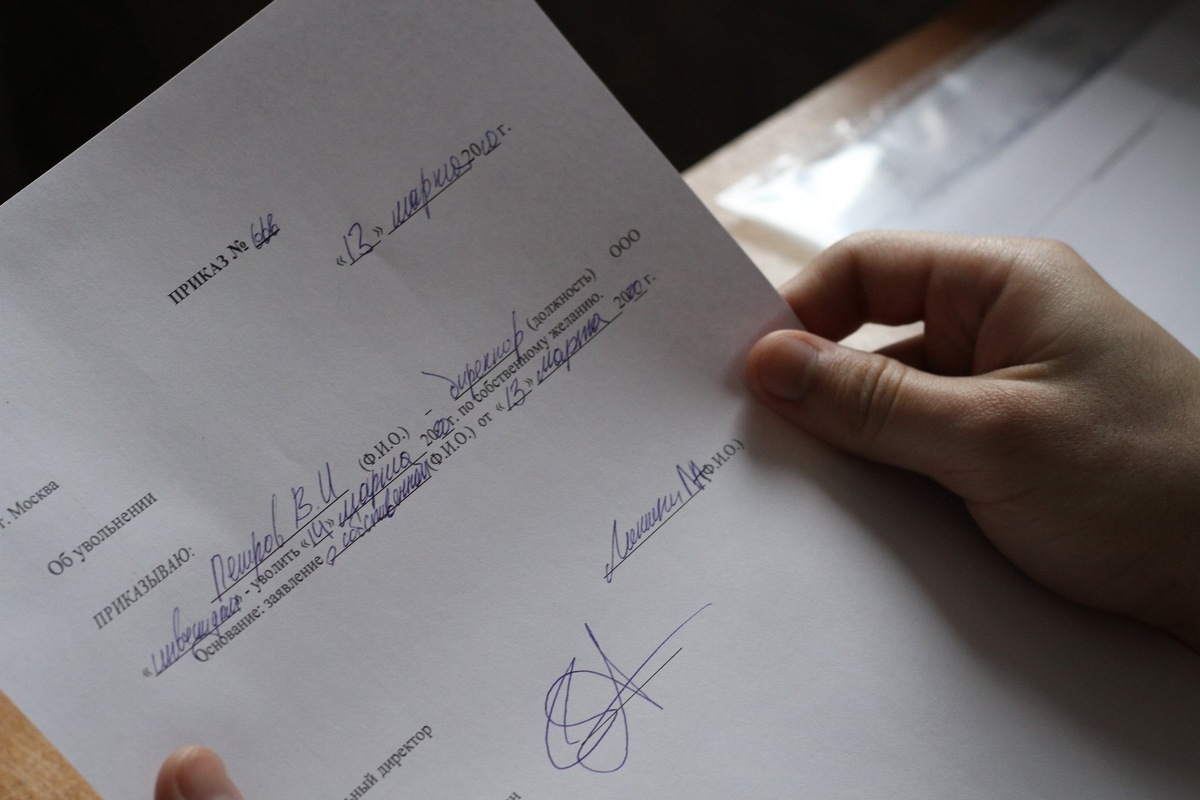 ПРИКАЗ № 666
«13» марта 2020 г.
г. Москва
Об увольнении
ПРИКАЗЫВАЮ:
Петров В.И (Ф.И.О.) - директор (должность) ООО
«инвестдом» - уволить «14» марта 2020 г. по собственному желанию.
Основание: заявление о собственном (Ф.И.О.) от «13» марта 2020 г.
(Ф.И.О.)
ьный директор